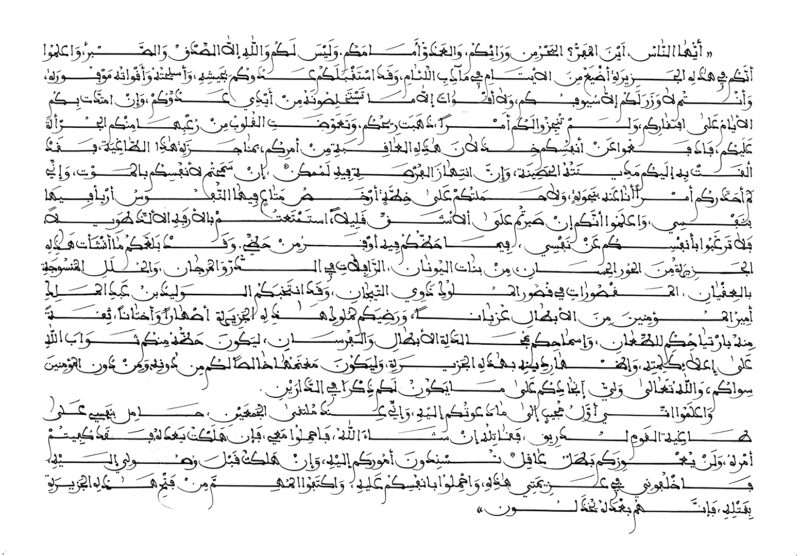 «أيها الناس، أين المفر؟ البحر من ورائكم، والعدو أمامكم، وليس لكم والله إلا الصدق والصبر، واعلموا
أنكم في هذه الجزيرة أضيع من الأيتام في مآدب اللئام، وقد استقبلكم عدوكم بجيشه، وأسلحته وأقواته موفورة،
وأنتم لا وزر لكم إلا سيوفكم، ولا أقوات إلا ما تستخلصونه من أيدي عدوكم، وإن امتدت بكم
الأيام على افتقاركم، ولم تنجزوا لكم أمرا، ذهبت ريحكم، وتعوضت القلوب من رعبها منكم الجرأة
عليكم، فادفعوا عن أنفسكم خذلان هذه العاقبة من أمركم، بمناجزة هذا الطاغية، فقد
ألقت به إليكم مدينته الحصينة، وإن انتهاز الفرصة فيه لممكن، إن سمحتم لأنفسكم بالموت، وإني
لم أحذركم أمرا أنا عنه بنجوة، ولا حملتكم على خطة أرخص متاع فيها النفوس أربأ فيها
بنفسي، واعلموا أنكم إن صبرتم على الأشق قليلا، استمتعتم بالأرفه الألذ طويلا،
فلا ترغبوا بأنفسكم عن نفسي، فيما حظكم فيه أوفر من حظي، وقد بلغكم ما أنشأت هذه
الجزيرة من الحور الحسان، من بنات اليونان، الرافلات في الدر والمرجان، والحلل المنسوجة
بالعقيان، المقصورات في قصور الملوك ذوي التيجان، وقد انتخبكم الوليد بن عبد الملك
أمير المؤمنين من الأبطال عربانا، ورضيكم لملوك هذه الجزيرة أصهارا وأختانا، ثقة
منه بارتياحكم للطعان، واسماحكم بمجالدة الأبطال والفرسان، ليكون حظه منكم ثواب الله
على إعلاء كلمته، وإظهار دينه بهذه الجزيرة، وليكون مغنمها خالصا لكم من دونه ومن دون المؤمنين
سواكم، والله تعالى ولي إنجادكم على ما يكون لكم ذكرا في الدارين.
واعلموا أنني أول مجيب إلى ما دعوتكم إليه، وأني عند ملتقى الجمعين، حامل بنفسي على
طاغية القوم لذريق، فقاتله إن شاء الله، فاحملوا معي، فإن هلكت بعده فقد كفيتم
أمره، ولن يعوزكم بطل عاقل تسندون أموركم إليه، وإن هلكت قبل وصولي إليه،
فاخلفوني في عزيمتي هذه، واحملوا بأنفسكم عليه، واكتفوا الهم من فتح هذه الجزيرة
بقتله، فإنهم بعده يخذلون»